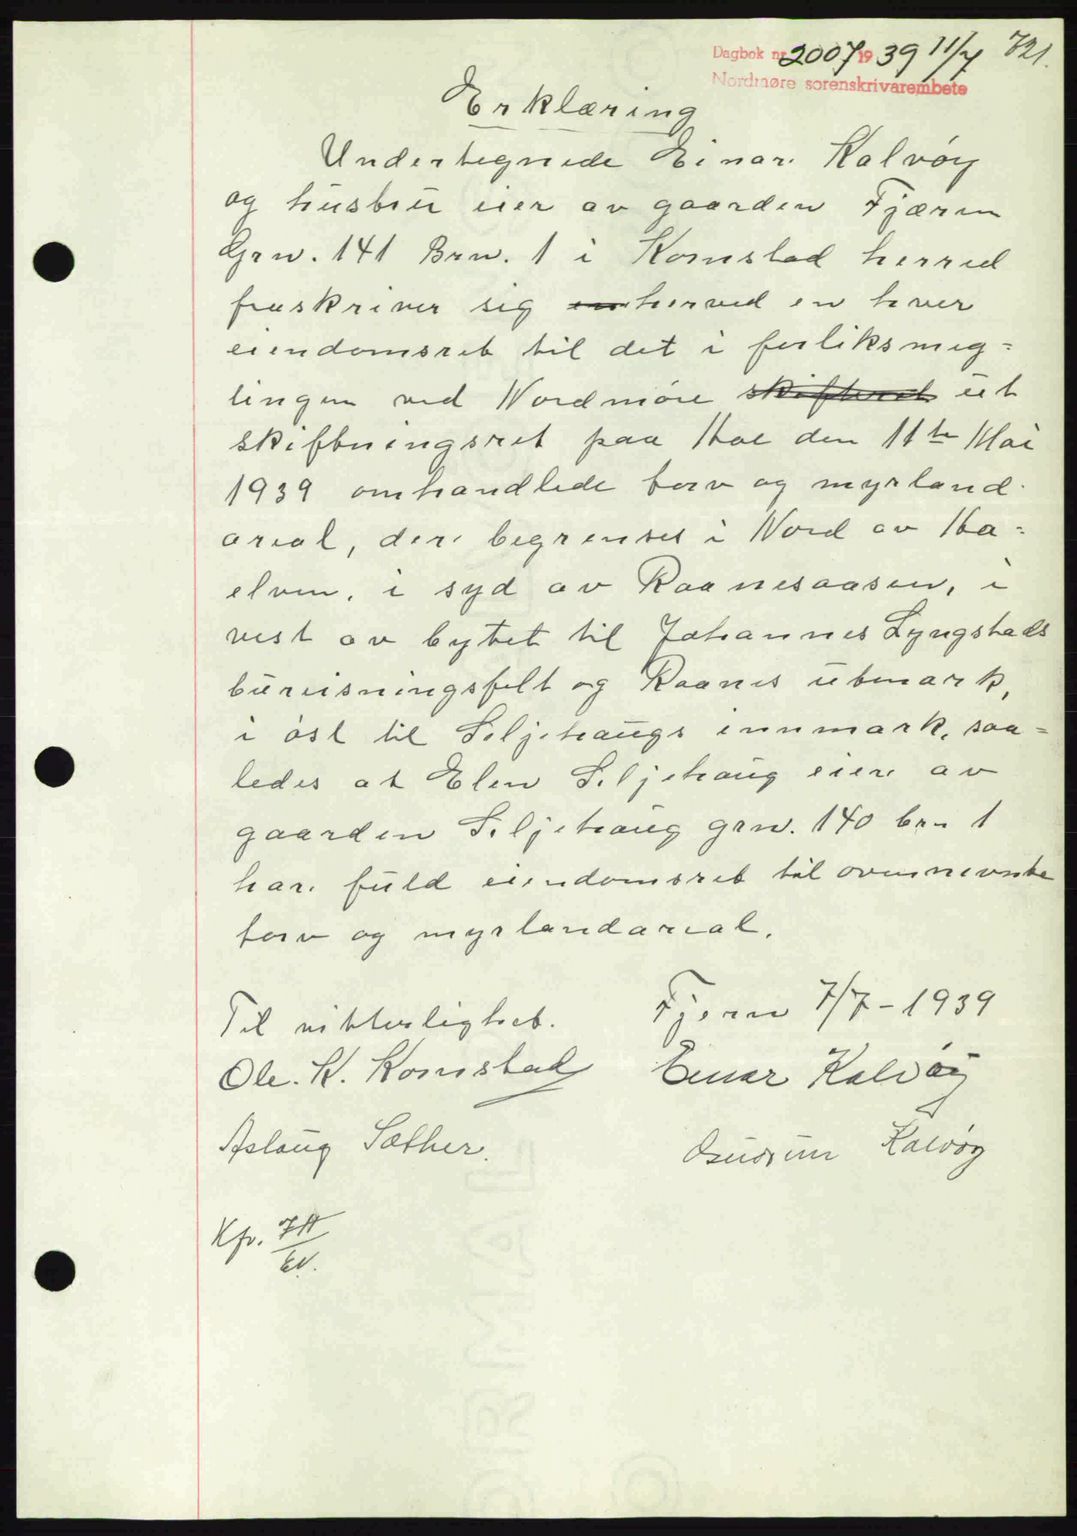 721.
Dagbok nr. 2007 1939 11/7
Nordmøre sorenskrivarembete
Erklæring
Undertegnede Einar Kalvøy
og hustru eier av gaarden Fjæren
Grn. 141 Brn. 1 i Kornstad herred
fraskriver sig en herved en hver
eiendomsret til det i forliksmeg=
lingen ved Nordmøre skifteret ut
skiftningsret paa Hoe den 11te Mai
1939 omhandlede torv og myrland
areal, der begrenses i Nord av Ha=
elven, i syd av Raanesaasen, i
vest av bytet til Johannes Lyngstads
bureisningsfelt og Raanes utmark,
i øst til Siljehaugs innmark, saa=
ledes at Elen Siljehaug eier av
gaarden Siljehaug grn. 140 brn 1
har fuld eiendomsret til ovennevnte
torv og myrlandareal.
Fjern 7/7-1939
Til vitterlighet.
Ole. K. Kornstad
Einar Kalvøy
Aslaug Sæther.
Gudrun Kalvøy
Kfr.